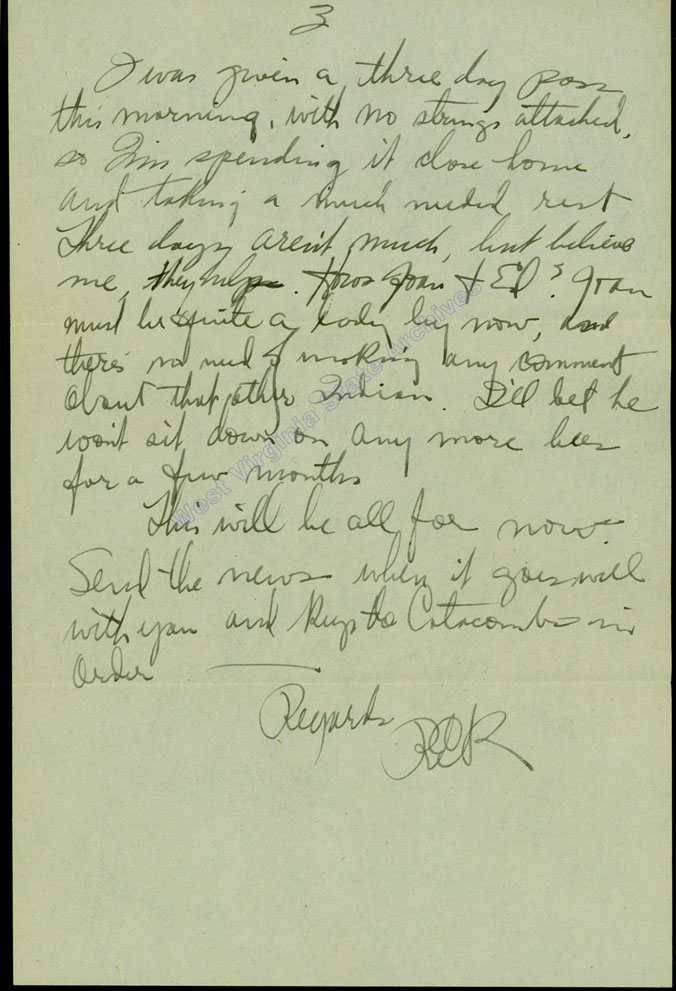 3
I was given a three day pass
this morning, with no strings attached,
so I'm spending it close home
and taking a much needed rest
Three days aren't much, but believe
me, they help. Hows Joan & Ed? Joan
must be quite a lady by now, and
there's no need of making any comment
about that other Indian. I'll bet he
won't sit down on any more bees
for a few months
This will be all for now
Send the news when it goes will
with you and keep the Catacombs in
Order
Regards
West Virginia State Archives